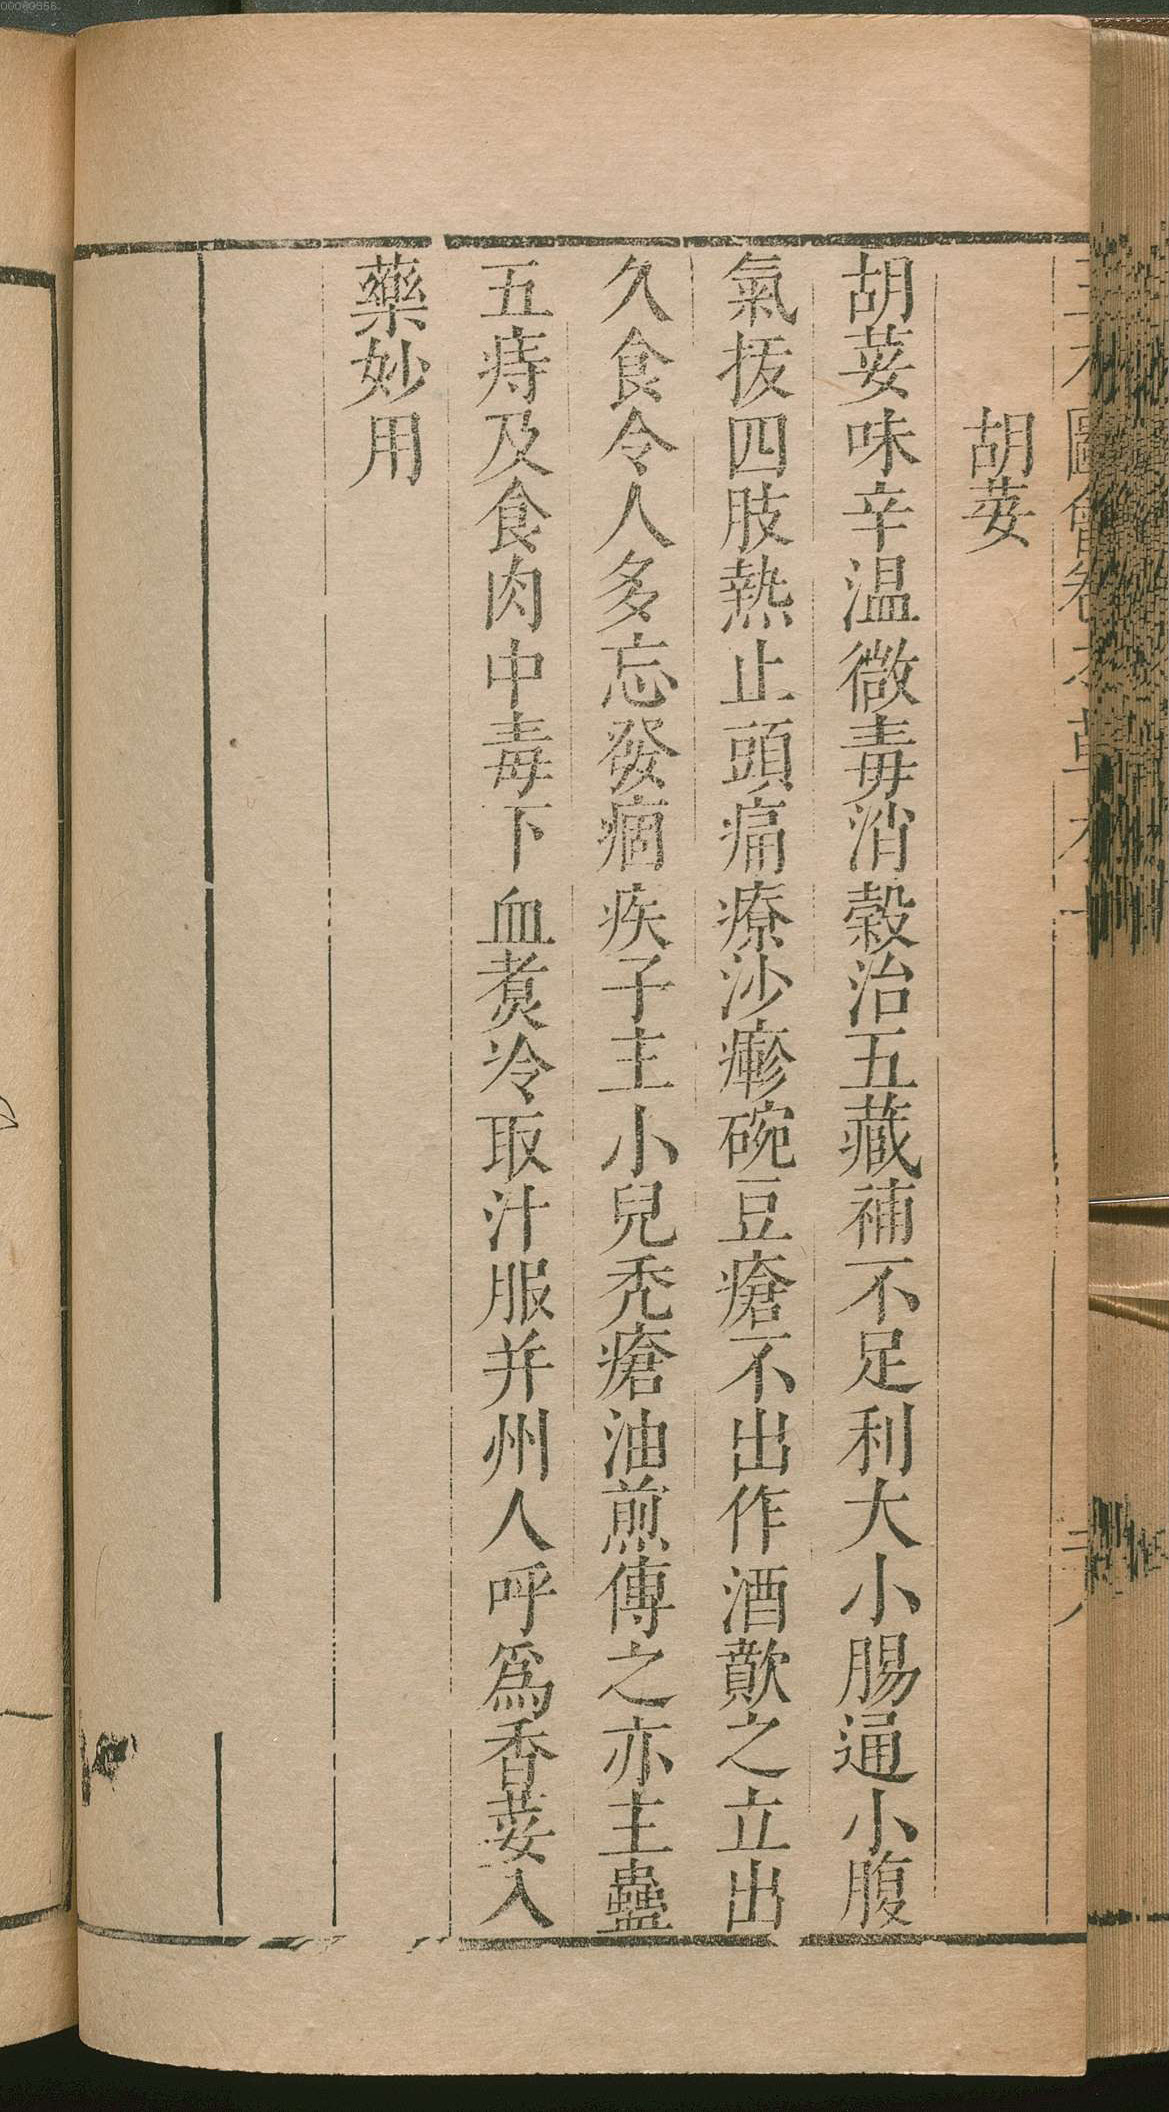 胡荽
胡荽味辛温微毒消穀治五藏補不足利大小腸通小腹
氣拔四肢熱止頭痛療沙瘮碗豆瘡不出作酒歕之立出
久食令人多忘發痼疾子主小兒禿瘡油煎傅之亦主蠱
五痔及食肉中毒下血煮冷取汁服并州人呼爲香荽入
藥妙用
00069558